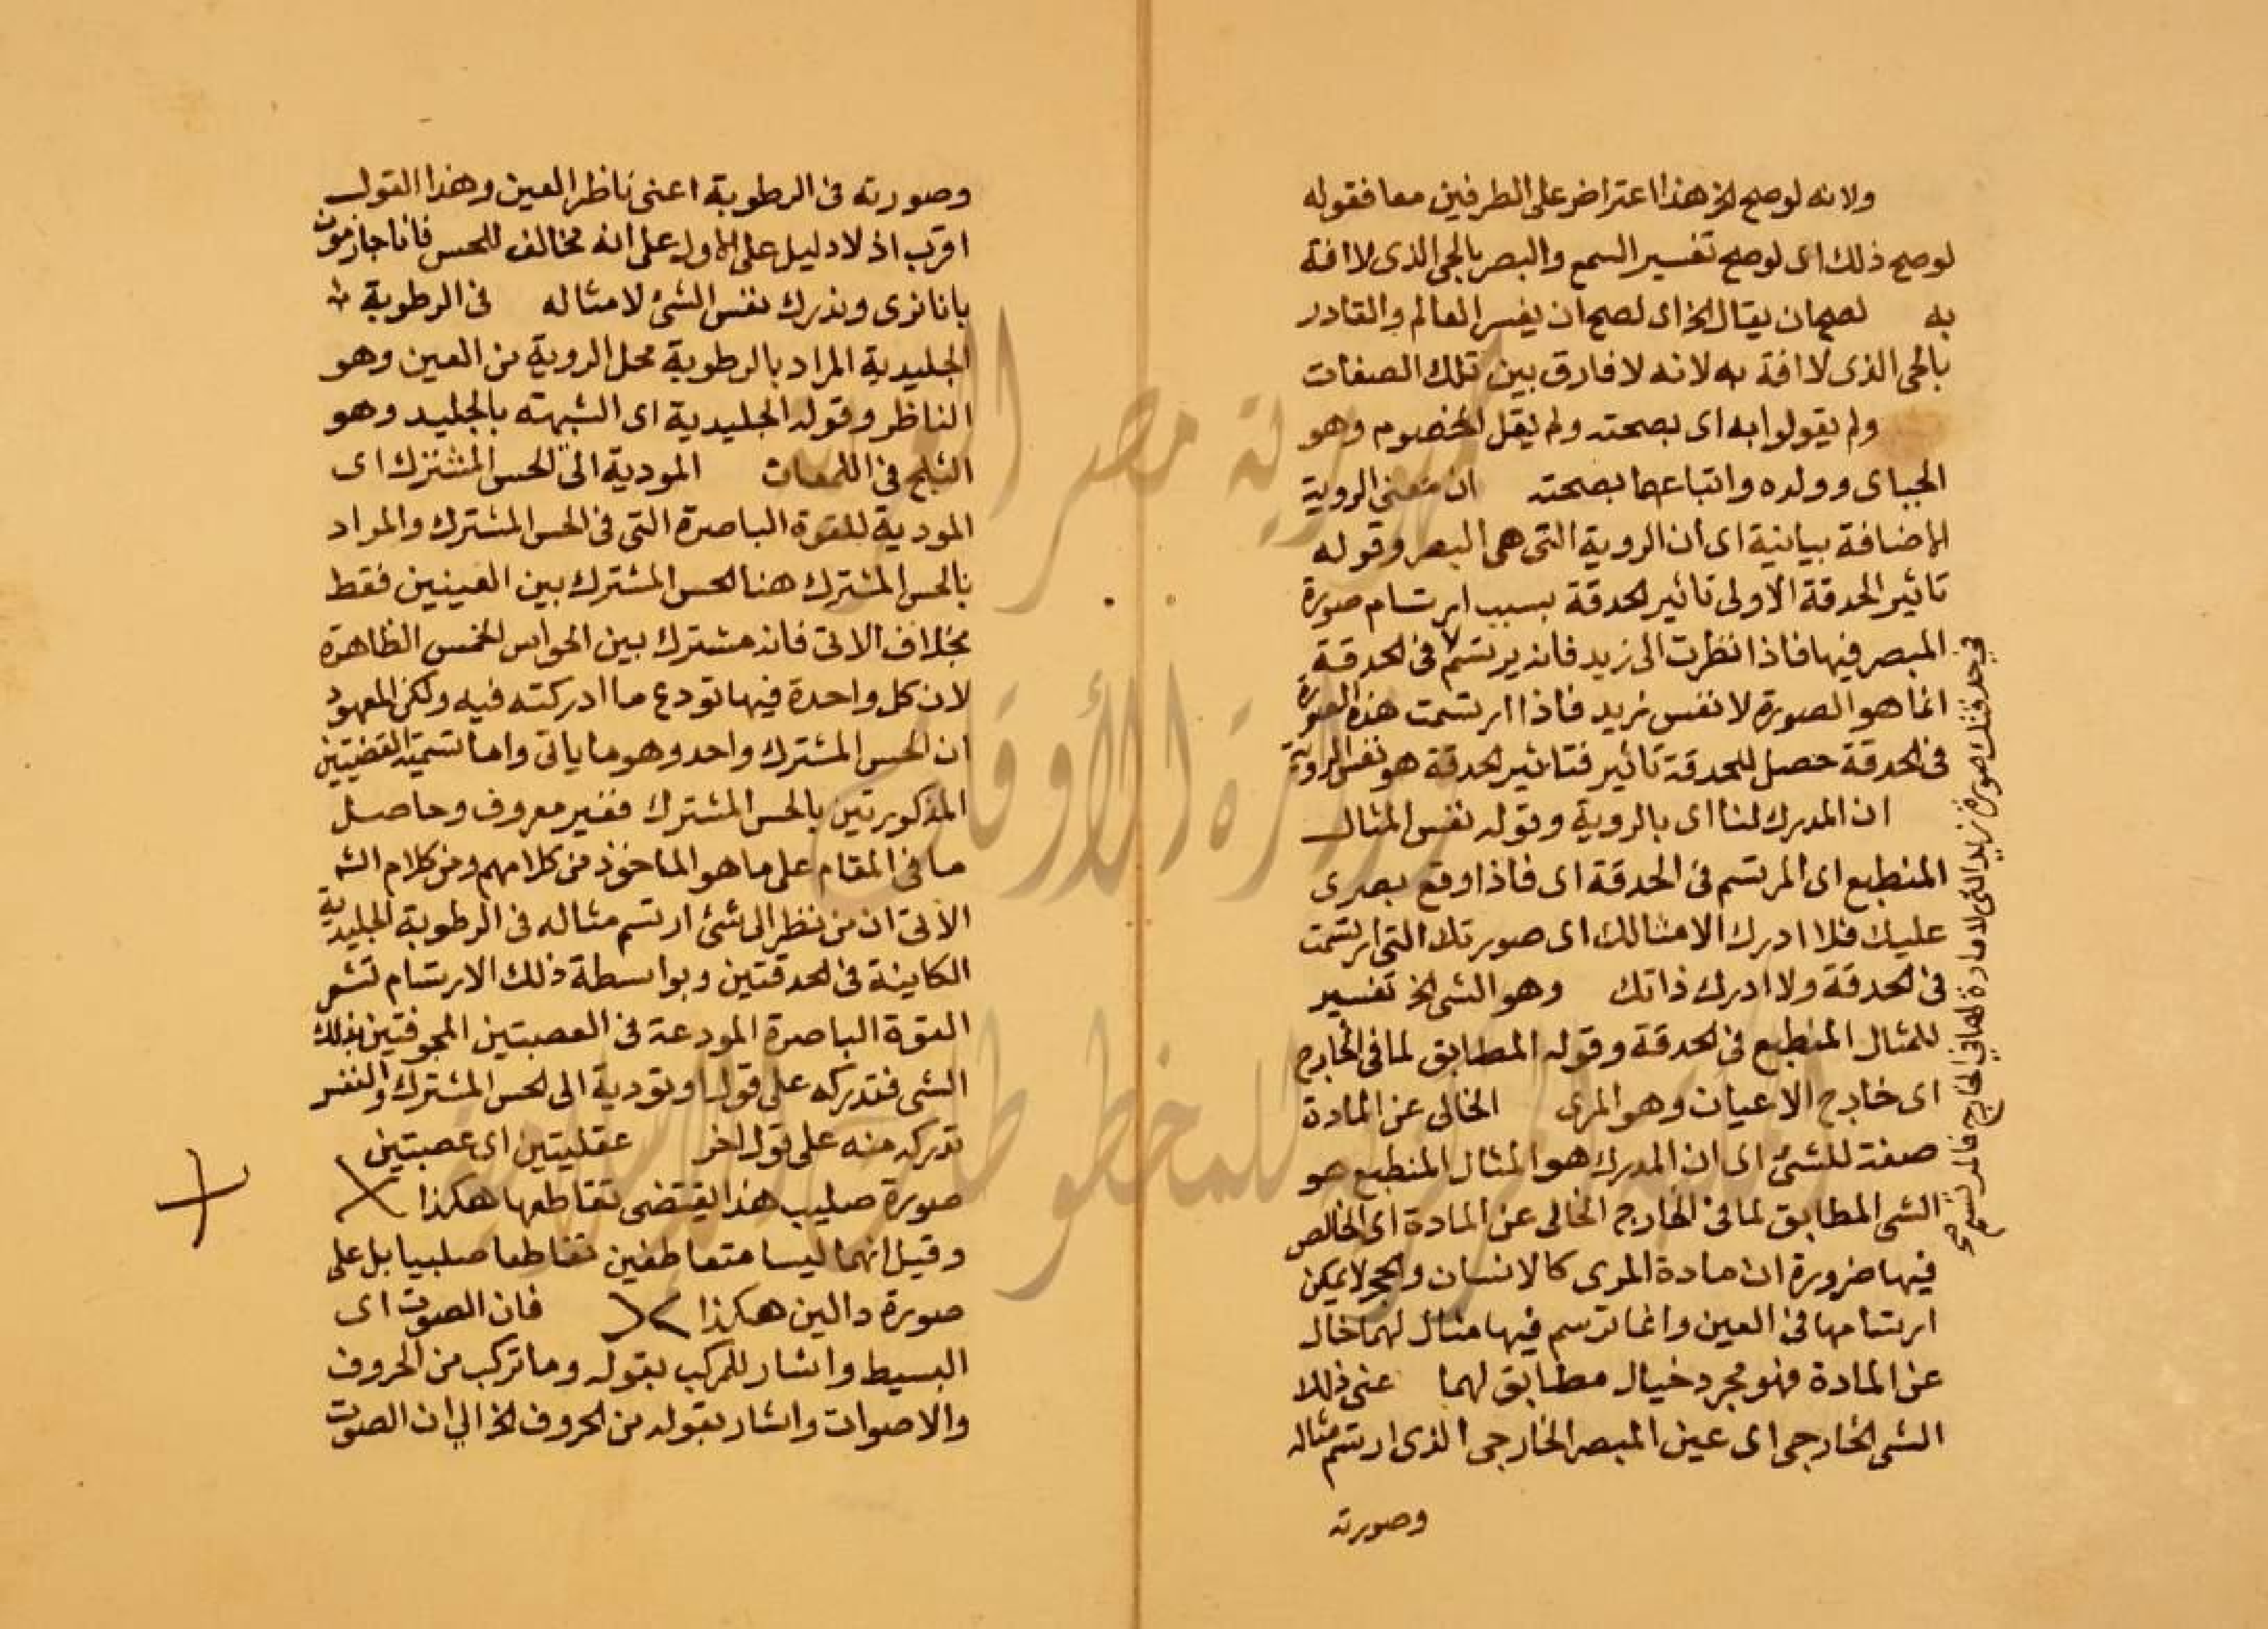 ولانه لوصح الخ هذا اعتراض على الطرفين معا فقوله
لوصح ذلك اى لوصح تفسير السمع والبصر بالحي الذى لا افة
به لصح ان يقال الخ اى لصح ان يفسر العالم والقادر
بالحى الذى لا افة به لانه لا فارق بين تلك الصفات
ولم يقولوا به اى بصحته ولم يقل الخصوم وهو
الجباى وولده واتباعهما بصحته ان معنى الروية
الاضافة بيانية اى ان الروية التى هى البصر وقوله
تاثير الحدقة الاولى تاثير الحدقة بسبب ارتسام صورة
المبصر فيها فاذا نظرت الى زيد فانه يرتسم في الحدقة
انما هو الصورة لا نفس زيد فاذا ارتسمت هذه الصورة
فى الحدقة حصل للحدقة تاثير فتاثير الحدقة هو نفس الروية
ان المدرك لنا اى بالروية وقوله نفس المثال
المنطبع اى المرتسم فى الحدقة اى فاذا وقع بصرى
عليك فلا ادرك الا مثالك اى صورتك التى ارتسمت
فى الحدقة ولا ادرك ذاتك وهو الشى الخ تفسير
للمثال المنطبع فى الحدقة وقوله المطابق لما فى الخارج
اى خارج الاعيان وهو المرى الخالى عن المادة
صفة للشئ اى ان المدرك هو المثال المنطبع هو
الشى المطابق لما فى الخارج الخالى عن المادة اى الخالص
فيها ضرورة ان مادة المرى كالانسان والحجر لا يمكن
ارتسامها فى العين وانما ترسم فيها مثال لهما خال
عن المادة فهو مجرد خيال مطابق لهما عنى ذلك
الشى الخارجى اى عين المبصر الخارجى الذى ارتسم مثاله
وصورته
فى حدقتك صورة زيد التى لا مادة لها فى الخارج فالمرتسم
وصورته فى الرطوبة اعنى ناظر العين وهذا القول
اقرب اذ لا دليل على الاول على انه مخالف للحس فانا جازمون
بانا نرى وندرك نفس الشئ لا مثاله فى الرطوبة
الجليدية المراد بالرطوبة محل الروية من العين وهو
الناظر وقوله الجليدية اى الشبهته بالجليد وهو
الثلج فى اللمعات المودية الى الحس المشترك اى
المودية للقوة الباصرة التى فى الحس المشترك والمراد
بالحس المشترك هنا الحس المشترك بين العينين فقط
بخلاف الاتى فانه مشترك بين الحواس الخمس الظاهرة
لان كل واحدة فيها تودع ما ادركته فيه ولكن المعهود
ان الحس المشترك واحد وهو ما ياتى واما تسمية القضيتين
المذكورتين بالحس المشترك فغير معروف وحاصل
ما فى المقام على ما هو الماخوذ من كلامهم ومن كلام الشه
الاتى ان من نظر الى شئ ارتسم مثاله فى الرطوبة الجليدية
الكاينة فى الحدقتين وبواسطة ذلك الارتسام تشعر
القوة الباصرة المودعة فى العصبتين المجوفتين بذلك
الشى فتدركه على قول او توديه الى الحس المشترك والنفس
تدركه منه على قول اخر عقليتين اى عصبتين
صورة صليب هذا يقتضى تقاطعها هكذا
وقيل انهما ليسا متعاطفين تقاطعا صلبيا بل على
صورة دالين هكذا فان الصوت اى
البسيط واشار للمركب بقوله وما تركب من الحروف
والاصوات واشار بقوله من الحروف الخ الي ان الصوت
جمهورية مصر العربية
وزارة الأوقاف
المكتبة المركزية للمخطوطات الإسلامية